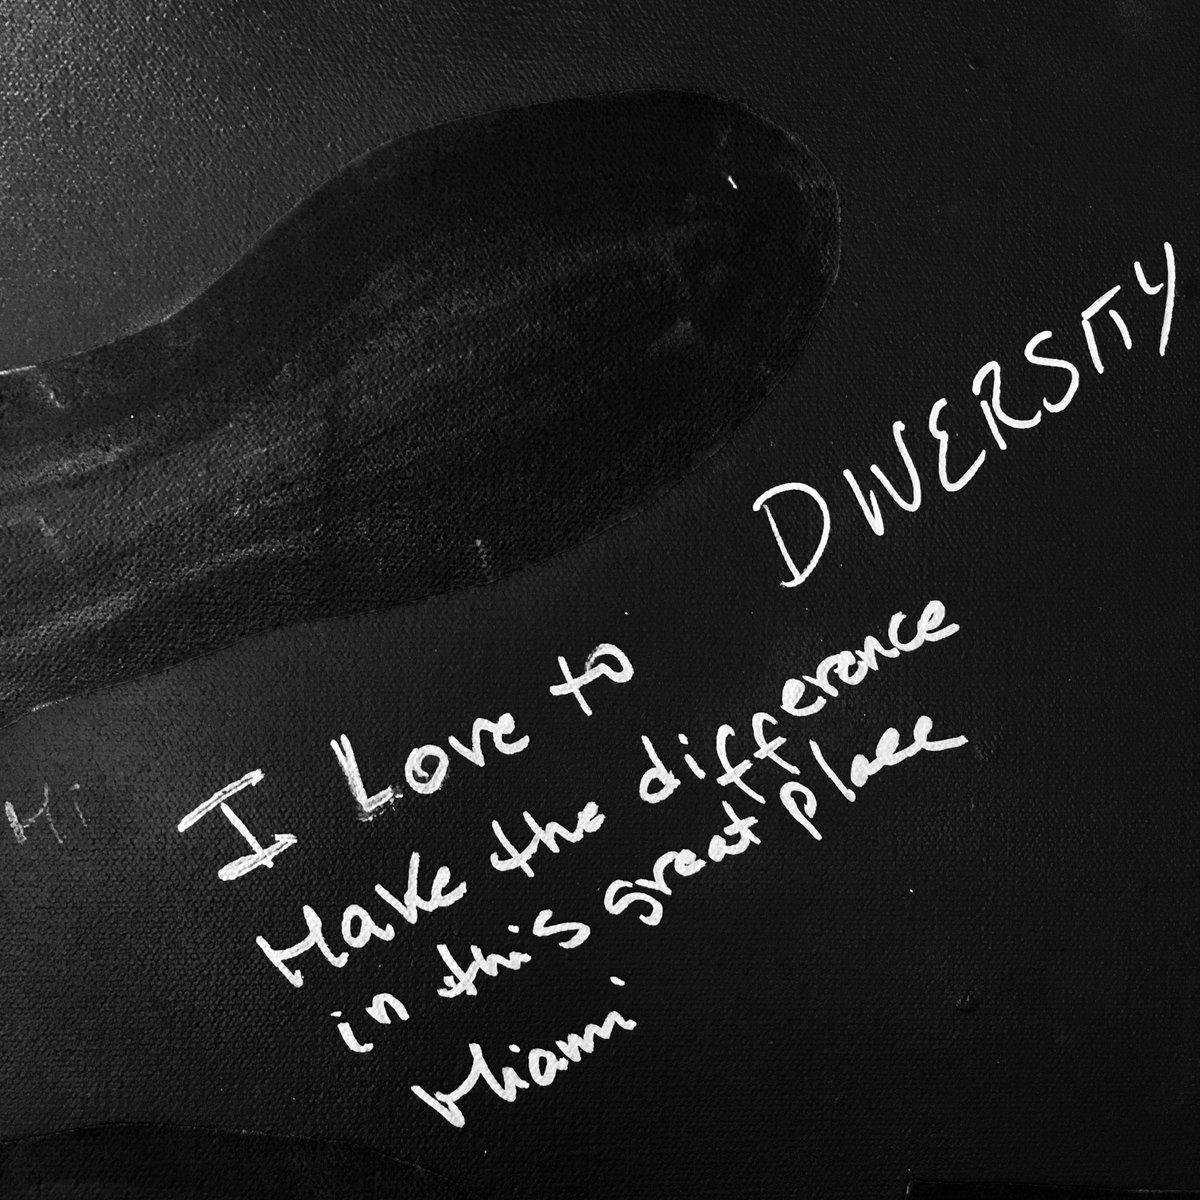 DIVERSITY
I Love to
Make the difference
in this great place
Miami
Mi